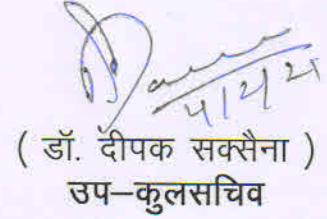 4/2/21
( डॉ. दीपक सक्सैना )
उप–कुलसचिव